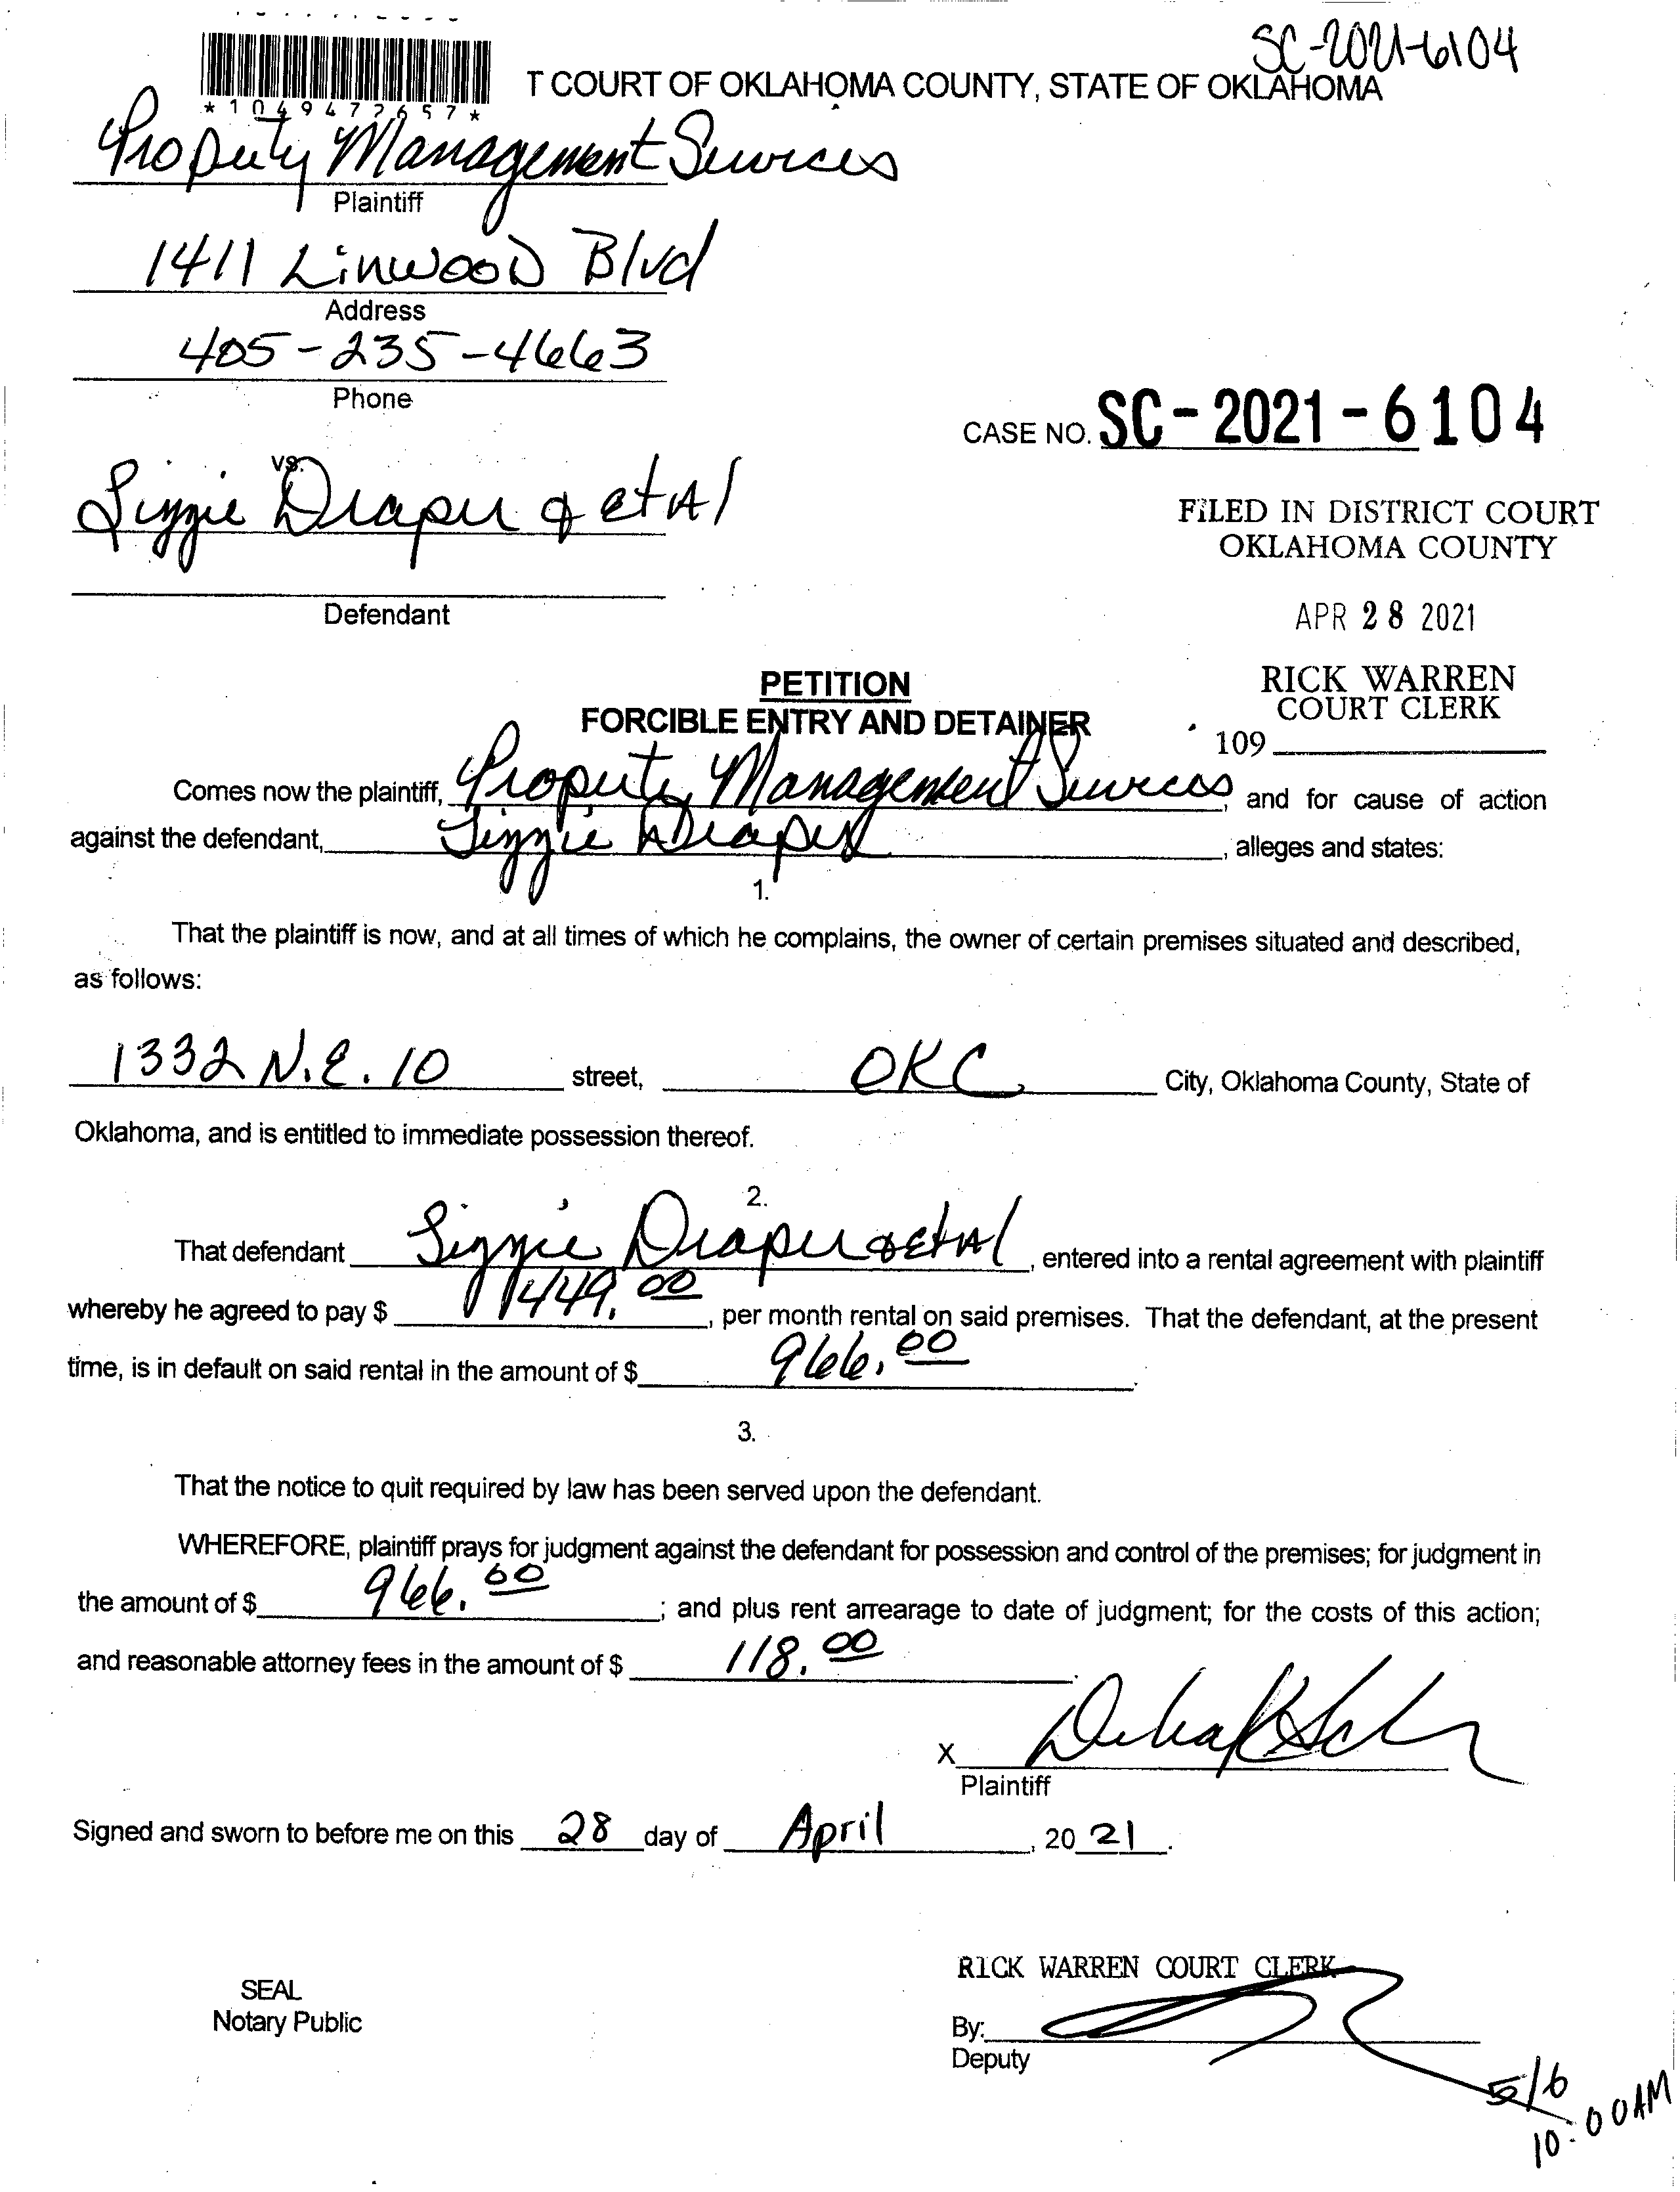 SC-2021-6104
T COURT OF OKLAHOMA COUNTY, STATE OF OKLAHOMA
* 1 0 4 9 4 7 7 6 5 7 *
Property Management Services
Plaintiff
1411 Linwood Blvd
Address
405-235-4663
Phone
CASE NO. SC-2021-6104
vs.
Lizzie Draper & et Al
FILED IN DISTRICT COURT
OKLAHOMA COUNTY
Defendant
APR 28 2021
RICK WARREN
COURT CLERK
109
PETITION
FORCIBLE ENTRY AND DETAINER
Comes now the plaintiff, Property Management Services, and for cause of action
against the defendant, Lizzie Draper, alleges and states:
1.
That the plaintiff is now, and at all times of which he complains, the owner of certain premises situated and described,
as follows:
1332 N.E. 10 street, OKC, City, Oklahoma County, State of
Oklahoma, and is entitled to immediate possession thereof.
2.
That defendant Lizzie Draper & et Al, entered into a rental agreement with plaintiff
whereby he agreed to pay $ 449.00, per month rental on said premises. That the defendant, at the present
time, is in default on said rental in the amount of $ 966.00.
3.
That the notice to quit required by law has been served upon the defendant.
WHEREFORE, plaintiff prays for judgment against the defendant for possession and control of the premises; for judgment in
the amount of $ 966.00; and plus rent arrearage to date of judgment; for the costs of this action;
and reasonable attorney fees in the amount of $ 118.00.
X
Plaintiff
Signed and sworn to before me on this 28 day of April, 20 21.
RICK WARREN COURT CLERK
SEAL
Notary Public
By:
Deputy
5/6
10:00AM